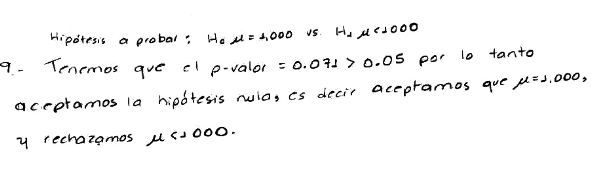 Hipótesis a probar: H₀ μ = 1,000 vs. H₁ μ < 1000
9.- Tenemos que el p-valor = 0.071 > 0.05 por lo tanto
aceptamos la hipótesis nula, es decir aceptamos que μ = 1,000,
y rechazamos μ < 1000.